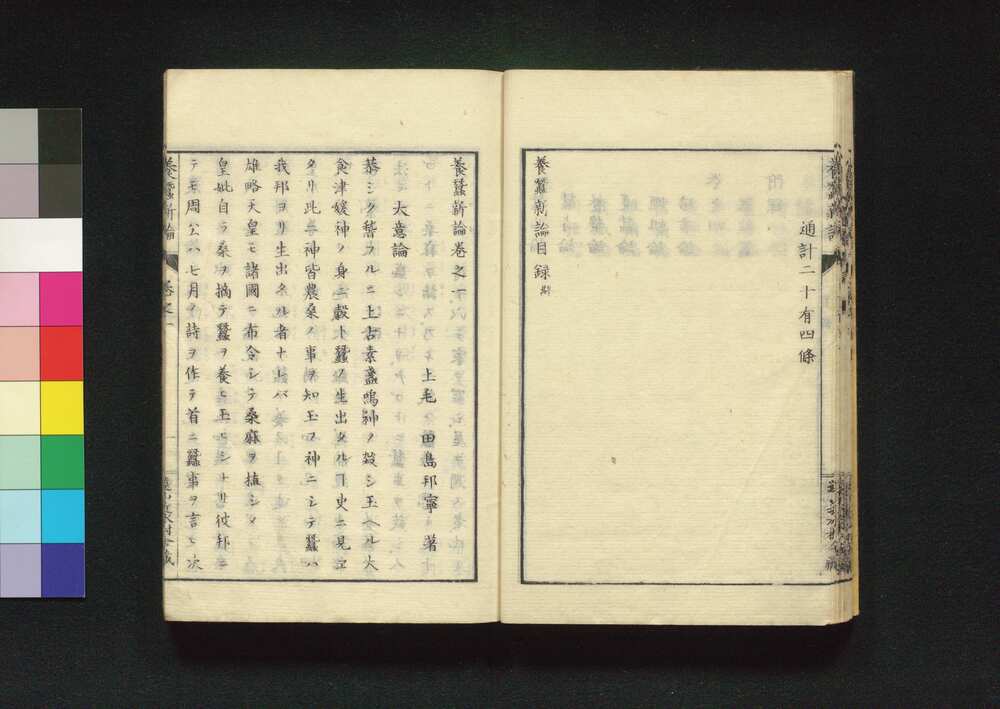 通計二十有四條
養蠶新論目録終
養蠶新論卷之一
上毛 田島邦寧 著
大意論
恭シク稽フルニ上古素盞嗚神ノ殺シ玉ヘル大
食津媛神ノ身ニ穀ト蠶ノ生出タル𪜈史ニ見エ
タリ此二神皆農桑ノ事ヲ知玉フ神ニシテ蠶ハ
我邦ヨリ生出タル者ナレバ
雄略天皇モ諸國ニ布令シテ桑麻ヲ植シメ
皇妣自ラ桑ヲ摘テ蠶ヲ養ヒ玉ヒシナリ彼邦ニ
テモ周公ハ七月ノ詩ヲ作テ首ニ蠶事ヲ言ヒ次
養蠶新論 卷之一